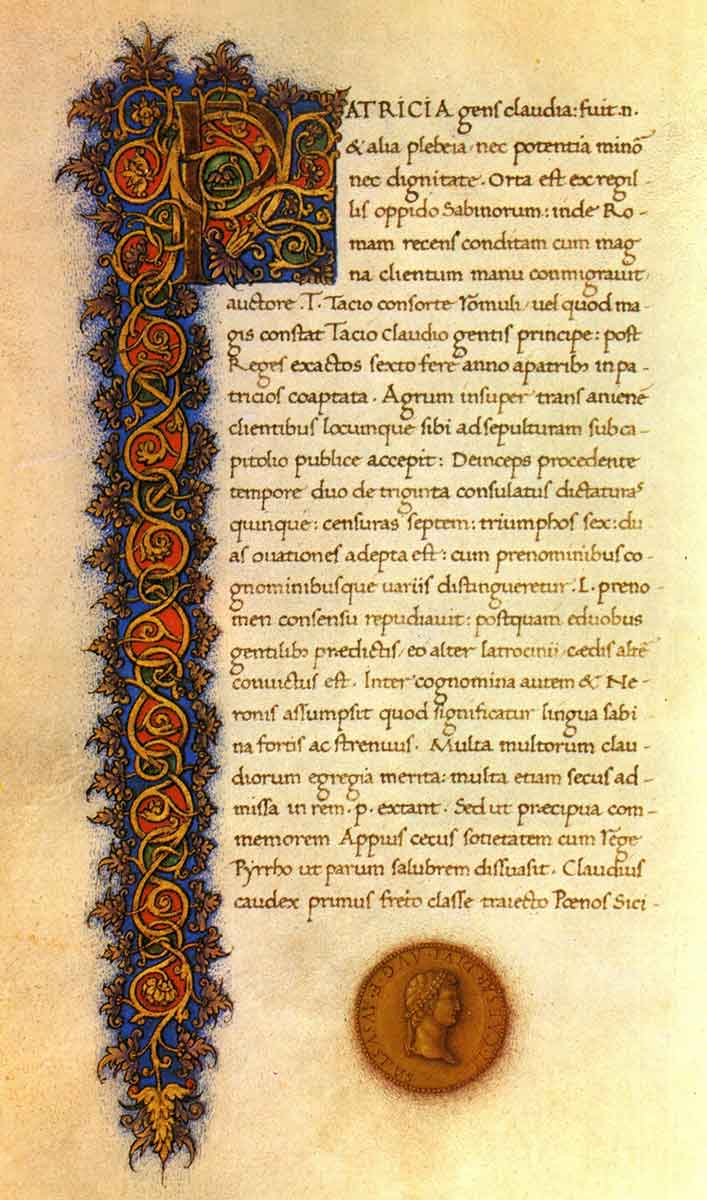 PATRICIA gens claudia: fuit .n.
& alia plebeia nec potentia minõ
nec dignitate. Orta est ex regil-
lis oppido Sabinorum: inde Ro-
mam recens conditam cum mag
na clientum manu conmigrauit
auctore .T. Tacio consorte romuli, uel quod ma-
gis constat Tacio Claudio gentis principe: post
Reges exactos sexto fere anno apatrib; inpa-
tricios coaptata. Agrum insuper trans anienẽ
clientibus locumque sibi adsepulturam subca-
pitolio publice accepit: Deinceps procedente
tempore duo de triginta consulatus dictaturas
quinque: censuras septem: triumphos sex: du
as ouationes adepta est: cum prenominibus co-
gnominibusque uariis distingueretur. L. preno
men consensu repudiauit: postquam eduobus
gentilib; prædictis, eo alter latrocinii, cædis altẽ
conuictus est. Inter cognomina autem & Ne-
ronis assumpsit quod significatur lingua sabi
na fortis ac strenuus. Multa multorum clau-
diorum egregia merita: multa etiam secus ad-
missa in rem .p. extant. Sed ut præcipua com-
memorem Appius cecus sotietatem cum rege
Pyrrho ut parum salubrem dissuasit. Claudius
caudex primus freto classe traiecto Pœnos Sici-